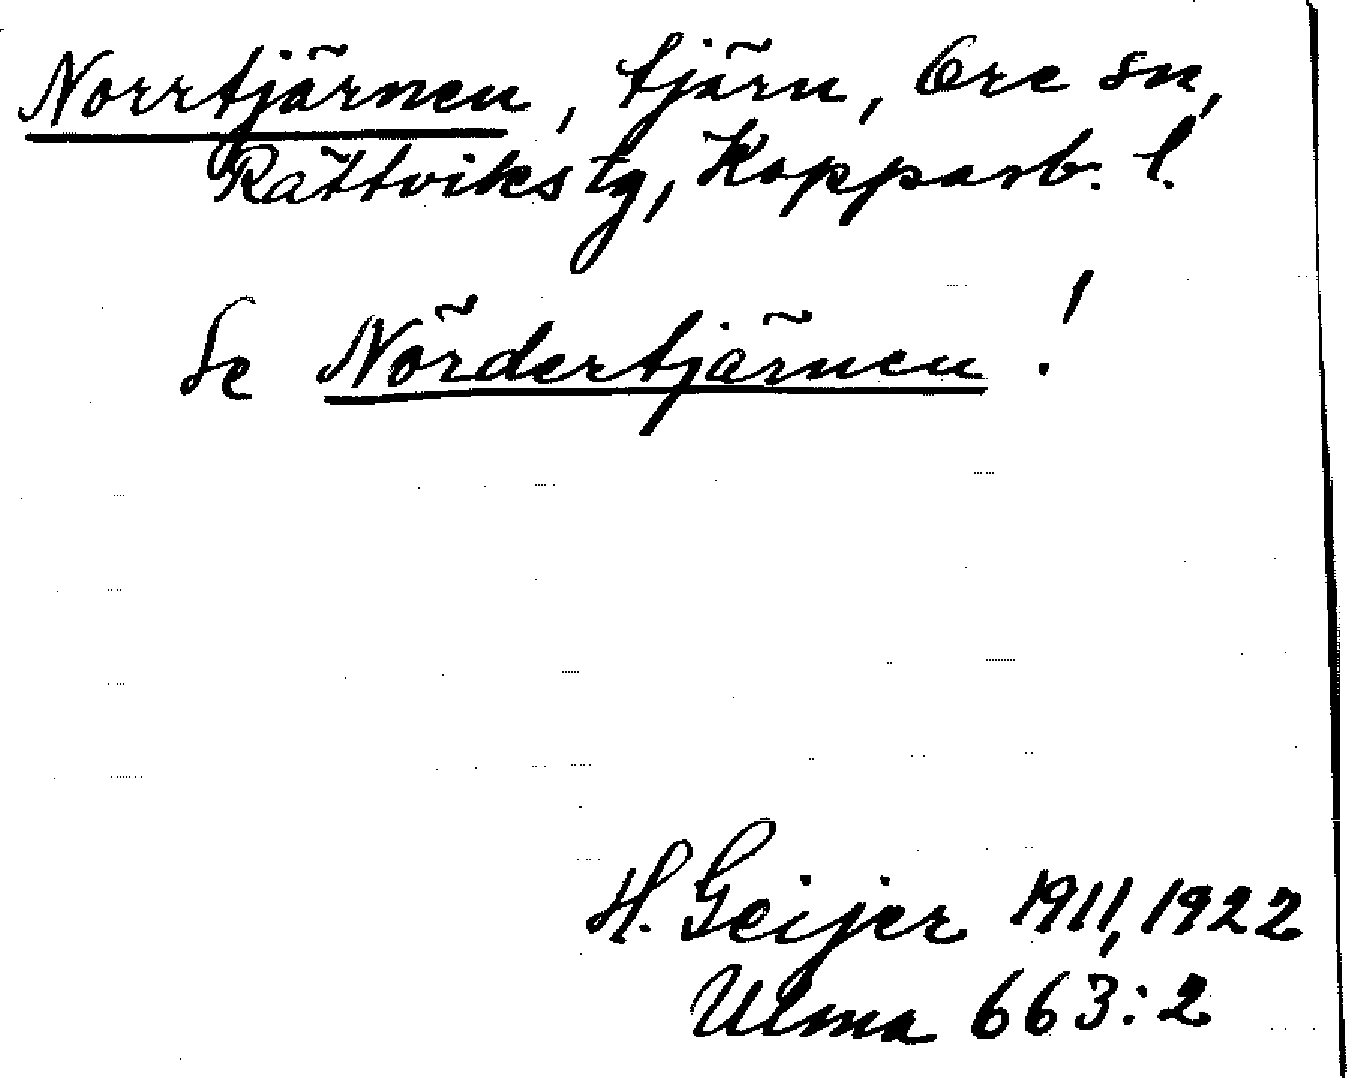 Norrtjärnen, tjärn, Ore sn,
Rättviks tg, Kopparb. l.
Se Nördertjärnen!
H. Geijer 1911, 1922
Ulma 663:2